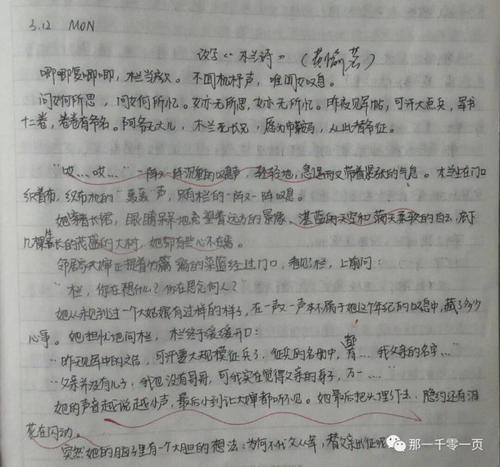 3.12 MON
改写《木兰诗》（黄愉芸）
唧唧复唧唧，木兰当户织。不闻机杼声，唯闻女叹息。
问女何所思，问女何所忆。女亦无所思，女亦无所忆。昨夜见军帖，可汗大点兵，军书
十二卷，卷卷有爷名。阿爷无大儿，木兰无长兄，愿为市鞍马，从此替爷征。
“哎…哎…”一阵又一阵沉重的叹息声，轻轻地，急促而又带着紧张的气息。木兰坐在门口
织着布，织布机的“轰轰”声，只有木兰的一阵又一阵叹息。
她穿着长裙，眼睛呆呆地看望着远方的景象。湛蓝的天空和满天柔软的白云，旁门
几棵生长的茂盛的大树，她却有些心不在焉。
邻居大婶正提着竹篮 满的菜篮经过门口，看见木兰，上前问：
“木兰，你在想什么？你在思念何人？”
她从未见到过一个大姑娘有过这样的样子，在一声又一声本不属于她这个年纪的叹息中，藏了多少
心事。她担忧地问木兰，木兰终于缓缓开口：
“昨夜军中的文告，可汗要大规模征兵了，征兵的名册中，有…我父亲的名字…”
“父亲并没有儿子，我也没有哥哥，可我实在觉得父亲的身子，万一…”
她的声音越说越小声，最后小到让大婶都听不见。她最后把头埋了下去，隐约还有泪
花在闪动。
突然她的脑子里有一个大胆的想法：为何不代父从军，替父亲出征呢
那一千零一页